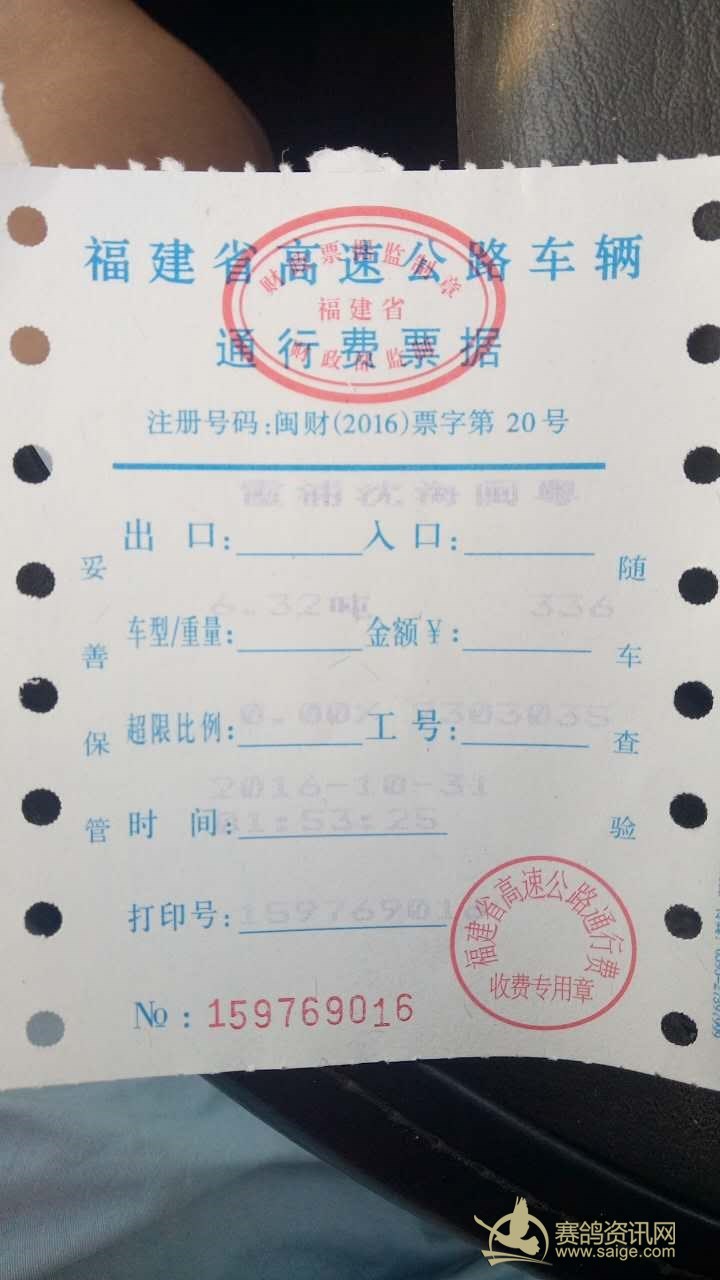 福建省高速公路车辆
通行费票据
财政票据监制章
福建省
财政部监制
注册号码:闽财(2016)票字第 20 号
霞浦沈海闽
出 口: 入 口:
6.32吨 336
车型/重量: 金额￥:
0.00% 3303035
超限比例: 工 号:
2016-10-31
时 间: 01:53:25
打印号: 159769016
妥善保管
随车查验
福建省高速公路通行费
收费专用章
№ : 159769016
赛鸽资讯网
www.saige.com